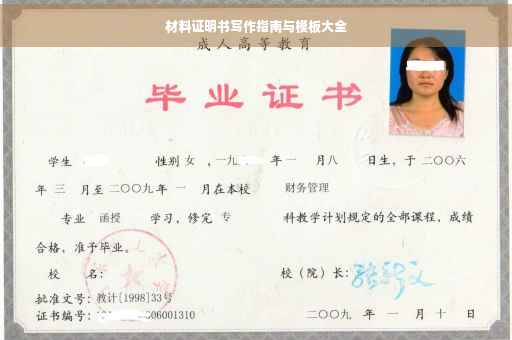 材料证明书写作指南与模板大全
成人高等教育
毕业证书
学生 性别 女 ,一九 年 一 月八 日生,于 二〇〇六
年 三 月至 二〇〇九 年 一 月在本校 财务管理
专业 函授 学习,修完 专 科教学计划规定的全部课程,成绩
合格,准予毕业。
校 名: 校(院)长:
批准文号:教计[1998]33号
证书编号: 06001310 二〇〇九 年 一 月 十 日